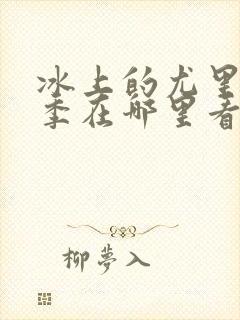 冰上的尤里
季在哪里看
柳夢入